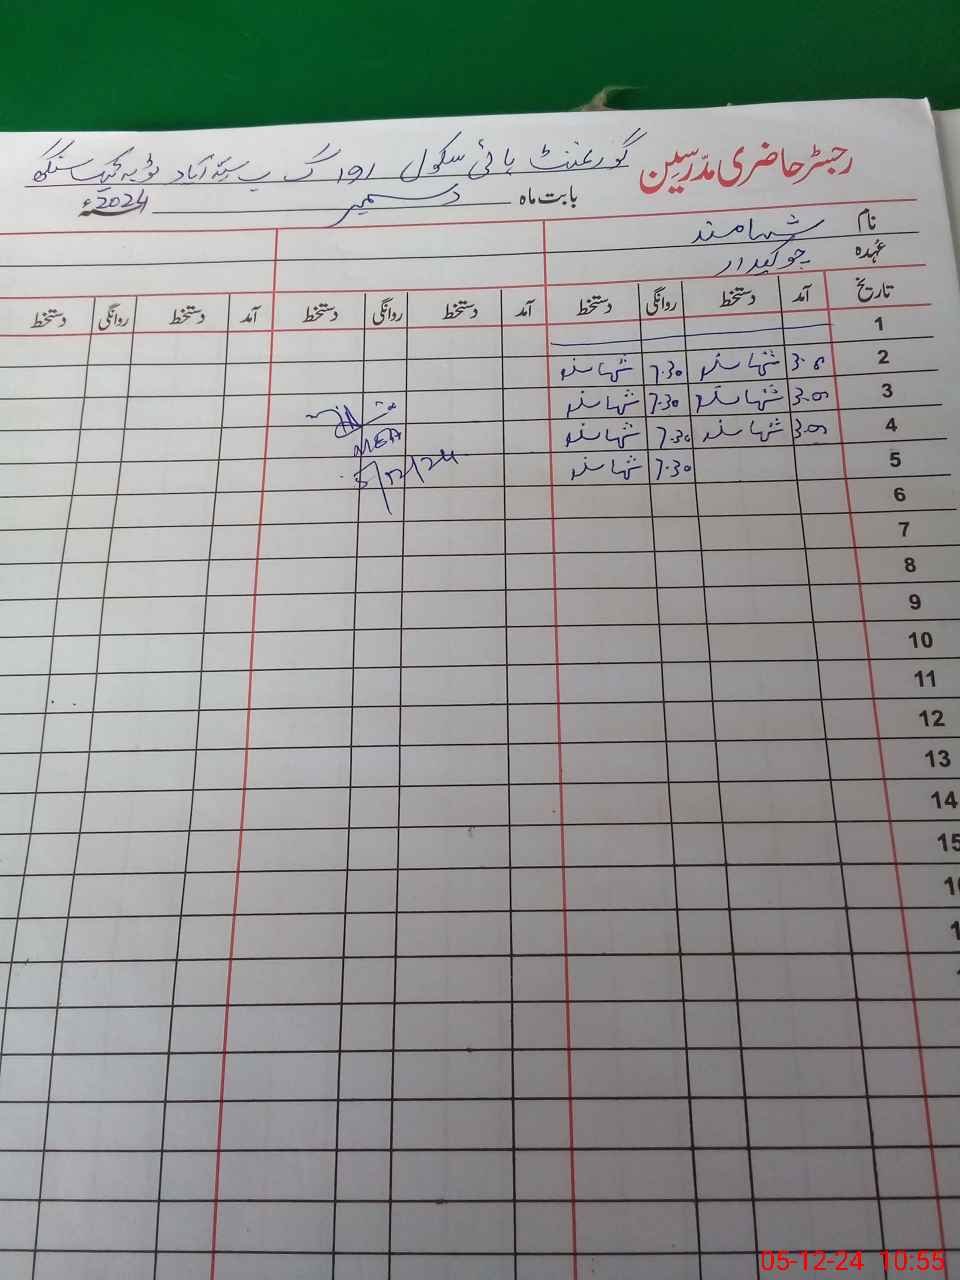 رجسٹر حاضری مدرسین گورنمنٹ ہائی سکول گ ب آباد ٹوبہ ٹیک سنگھ
بابت ماہ دسمبر 2024ء
نام
عہدہ چوکیدار
تاریخ آمد دستخط روانگی دستخط آمد دستخط روانگی دستخط آمد دستخط روانگی دستخط
1
2 7.30
3 3.00 7.30
4 3.00 7.30
5 7.30
MEA
5/12/24
6
7
8
9
10
11
12
13
14
15
05-12-24 10:55